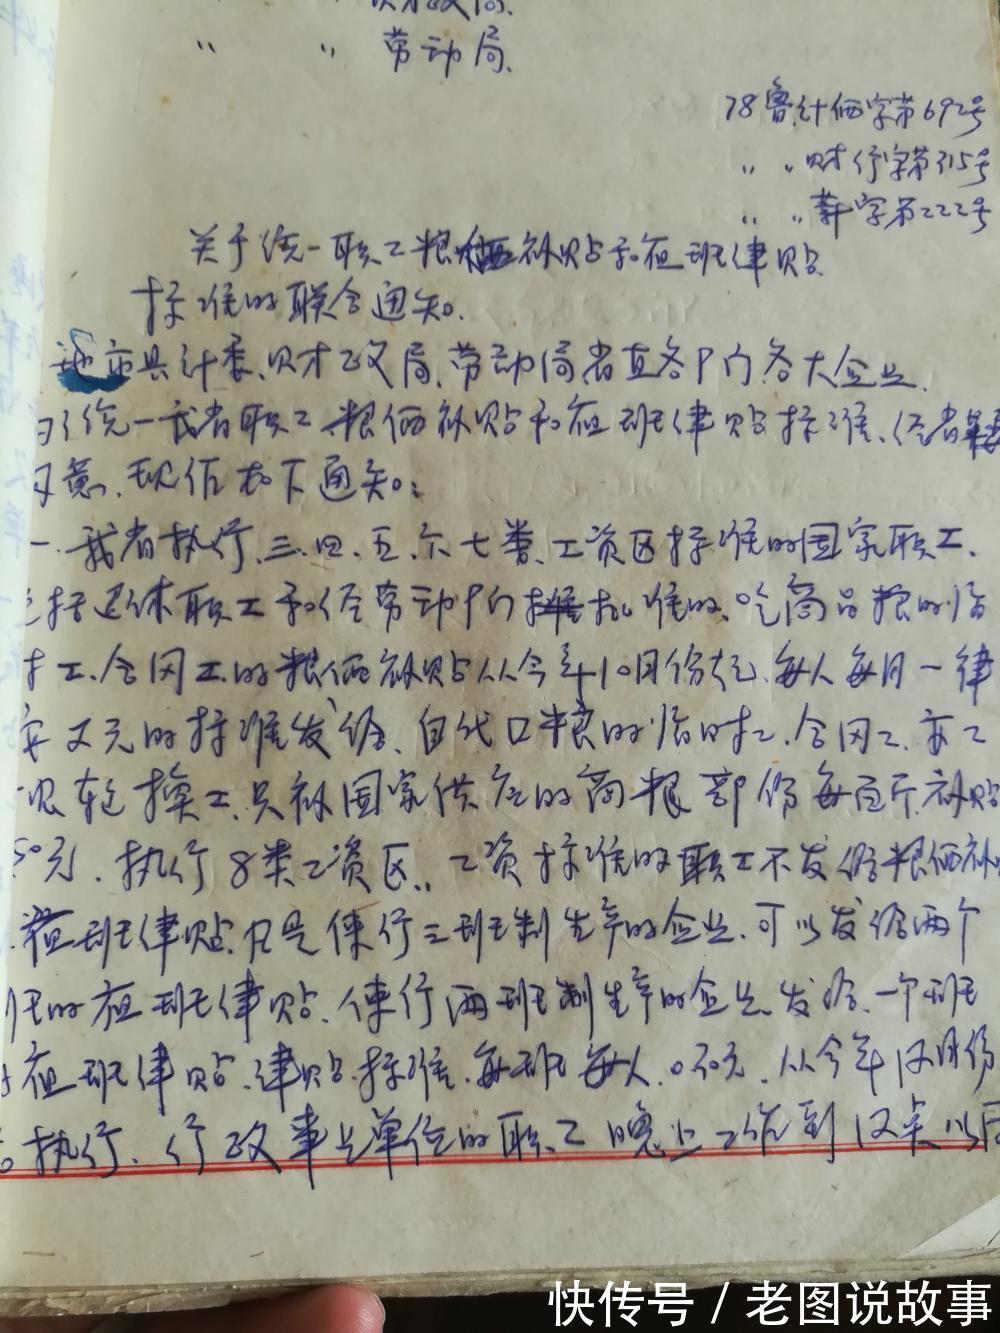 财政局.
〃 〃 劳动局.
78鲁计価字第692号
〃 〃 财行字第315号
〃 〃 劳字第222号
关于统一职工粮価补贴和夜班津贴
标准的联合通知.
地市县计委、财政局、劳动局、省直各部门、各大企业.
为了统一我省职工粮価补贴和夜班津贴标准、经省
同意、现作如下通知:
一、我省执行、三、四、五、六七类、工资区标准的国家职工、
包括退休职工和经劳动部门批准的、吃商品粮的临
时工、合同工的粮価补贴从今年10月份起、每人每月一律
按 元的标准发给、自代口粮的临时工、合同工、亦工
换工、只补国家供应的商粮部份每百斤补贴
50元、执行8类工资区、工资标准的职工不发给粮価补
夜班津贴、凡是使行三班制生产的企业、可以发给两个
班的夜班津贴、使行两班制生产的企业、发给一个班
的夜班津贴、津贴标准、每班每人 元、从今年 月份
起执行、行政事业单位的职工晚上工作到12点以后
快传号/老图说故事